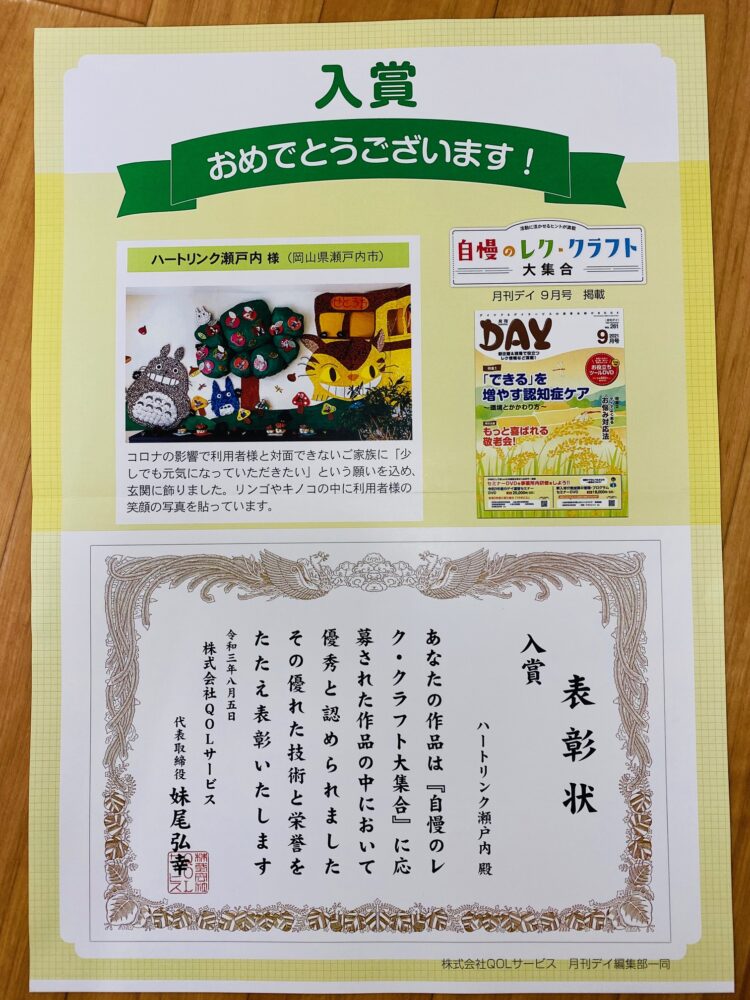 入賞
おめでとうございます！
ハートリンク瀬戸内 様（岡山県瀬戸内市）
コロナの影響で利用者様と対面できないご家族に「少
しでも元気になっていただきたい」という願いを込め、
玄関に飾りました。リンゴやキノコの中に利用者様の
笑顔の写真を貼っています。
活動に活かせるヒントが満載
自慢のレク・クラフト
大集合
月刊デイ 9月号 掲載
月刊
DAY
2021
9月号
No.261
特集1
「できる」を
増やす認知症ケア
～環境とかかわり方～
もっと喜ばれる
敬老会！
お役立ち
ツールDVD
お悩み対応法
表彰状
入賞
ハートリンク瀬戸内 殿
あなたの作品は『自慢のレ
ク・クラフト大集合』に応
募された作品の中において
優秀と認められました
その優れた技術と栄誉を
たたえ表彰いたします
令和三年八月五日
株式会社QOLサービス
代表取締役 妹尾弘幸
株式会社QOLサービス 月刊デイ編集部一同